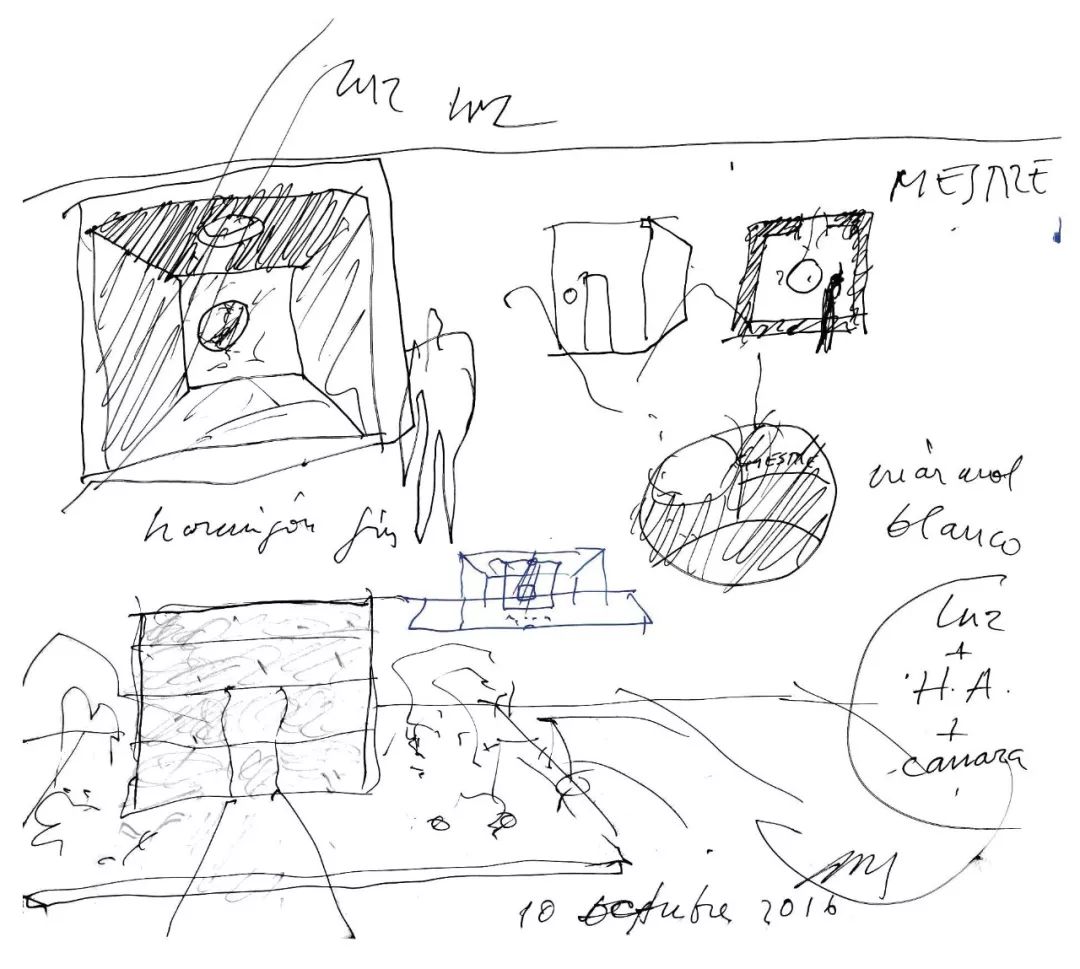 luz luz
MESTRE
MESTRE
mármol
blanco
hormigón gris
luz
+
H.A.
+
camara
10 octubre 2016